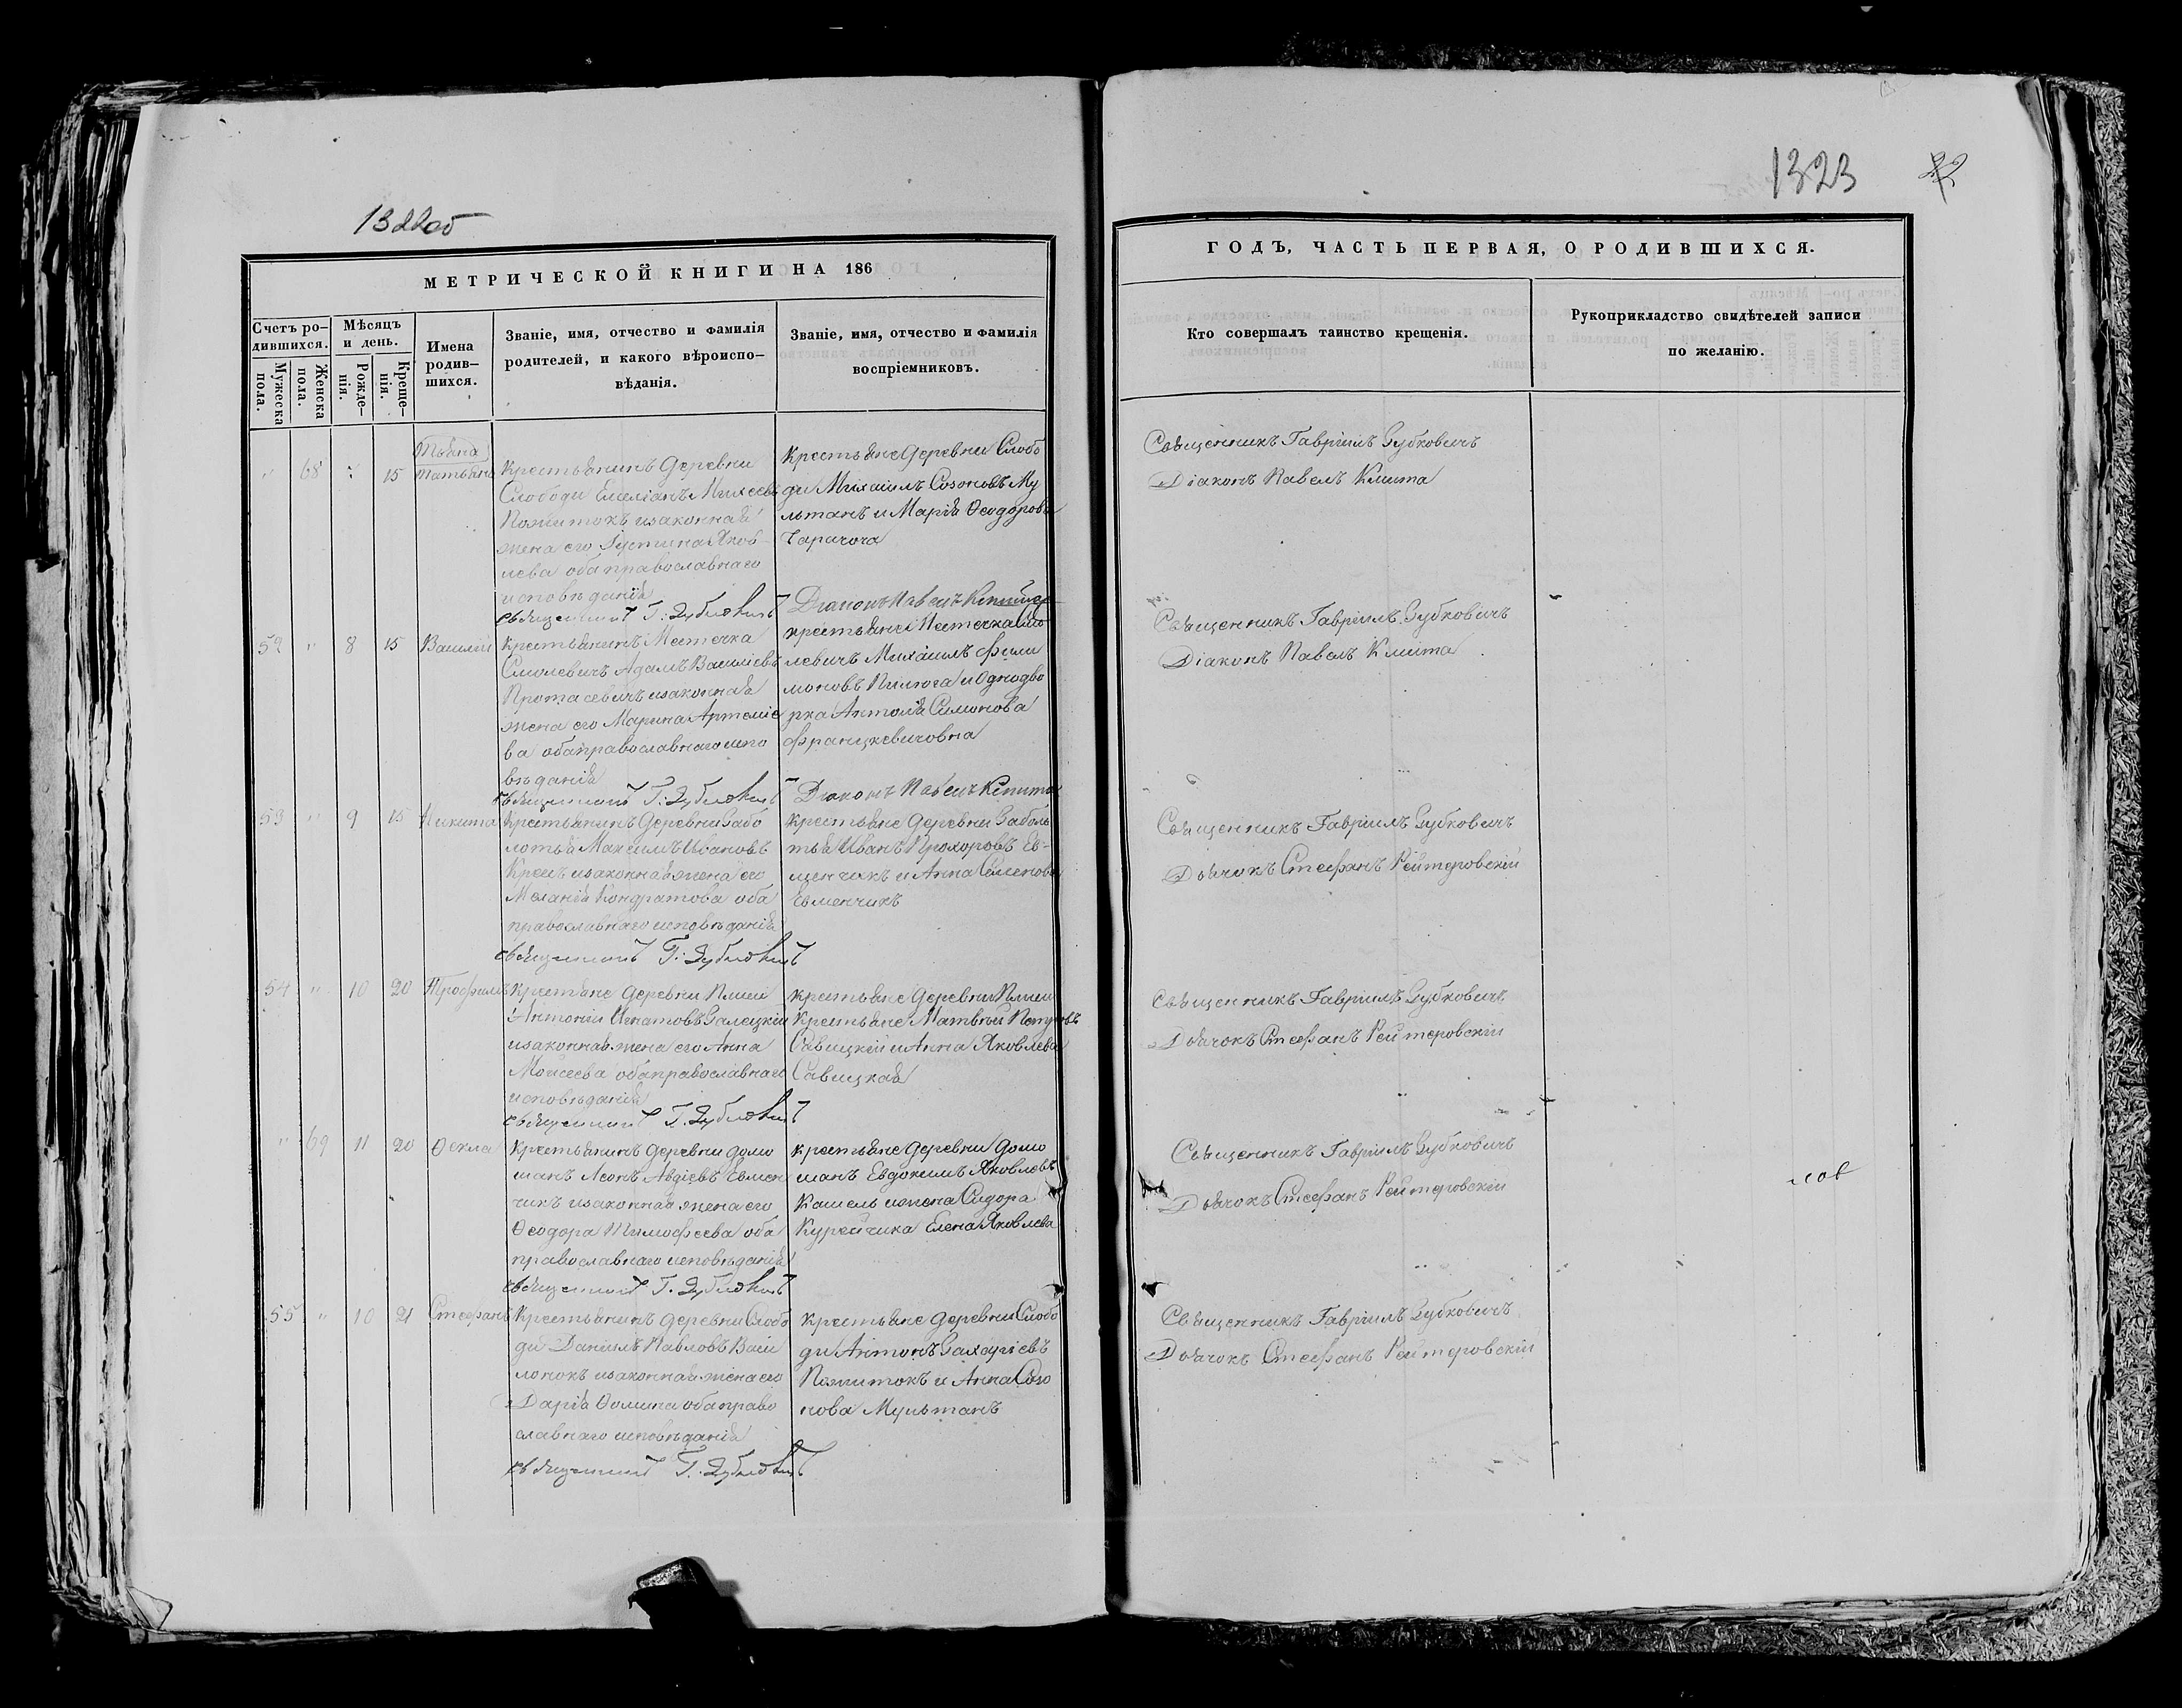 1322об
МЕТРИЧЕСКОЙ КНИГИ НА 186
Счетъ ро-
дившихся.
Мѣсяцъ
и день.
Мужеска
пола.
Женска
пола.
Рожде-
нія.
Креще-
нія.
Имена
родив-
шихся.
Званіе, имя, отчество и фамилія
родителей, и какого вѣроиспо-
вѣданія.
Званіе, имя, отчество и фамилія
воспріемниковъ.
" 68 15 Татьяна
Крестьянинъ деревни
Слободи Емеліанъ Михеевъ
Пожитокъ и законная
жена его Іустина Яков-
лева оба православнаго
исповѣданія
Священникъ Г. Зубковичъ
Крестьяне деревни Слобо
ди Михаилъ Созоновъ Му
льтанъ и Марія Ѳеодорова
Діаконъ Павелъ Кмита
52 " 8 15 Василій
Крестьянинъ Местечка
Смолевичъ Адамъ Василіевъ
Протасевичъ и законная
жена его Марина Артеміе
ва оба православнаго испо
вѣданія
Священникъ Г. Зубковичъ
крестьяне Местечка Смо
левичъ Михаилъ Фили
моновъ Пилюга и Однодво
рка Антоля Симонова
Францкевичовна
Діаконъ Павелъ Кмита
53 " 9 15 Никита
Крестьянинъ деревни Забо
лотья Максимъ Ивановъ
и законная жена его
Меланія Кондратова оба
православнаго исповѣданія
Священникъ Г. Зубковичъ
Крестьяне деревни Заболо
тья Иванъ Прохоровъ Ев-
менчикъ и Анна Семенова
Евменчикъ
54 " 10 20 Трофимъ
Крестьяне деревни Плиси
Антоній Игнатовъ Залецкій
и законная жена его Анна
Моисеева оба православнаго
исповѣданія
Священникъ Г. Зубковичъ
крестьяне деревни Плиси
Крестьяне Матвѣй Петровъ
Савицкій и Анна Яковлева
Савицкая
" 69 11 20 Ѳекла
Крестьянинъ деревни Домо
шанъ Леонъ Авдіевъ Евмен
чикъ и законная жена его
Ѳеодора Тимофеева оба
православнаго исповѣданія
Священникъ Г. Зубковичъ
крестьяне деревни Домо
шанъ Евдокимъ Яковлевъ
Кошель и жена Сидора
Курейчика Елена Яковлева
55 " 10 21 Стефанъ
Крестьянинъ деревни Слобо
ди Даніилъ Павловъ Васи
лонокъ и законная жена его
Дарія Ѳомина оба право
славнаго исповѣданія
Священникъ Г. Зубковичъ
крестьяне деревни Слобо
ди Антонъ Захаріевъ
Пожитокъ и Анна Созо
нова Мультанъ
1323
ГОДЪ, ЧАСТЬ ПЕРВАЯ, О РОДИВШИХСЯ.
Кто совершалъ таинство крещенія.
Рукоприкладство свидѣтелей записи
по желанію.
Священникъ Гавріилъ Зубковичъ
Діаконъ Павелъ Кмита
Священникъ Гавріилъ Зубковичъ
Діаконъ Павелъ Кмита
Священникъ Гавріилъ Зубковичъ
Дьячокъ Стефанъ Рейтеровскій
Священникъ Гавріилъ Зубковичъ
Дьячокъ Стефанъ Рейтеровскій
Священникъ Гавріилъ Зубковичъ
Дьячокъ Стефанъ Рейтеровскій
Священникъ Гавріилъ Зубковичъ
Дьячокъ Стефанъ Рейтеровскій